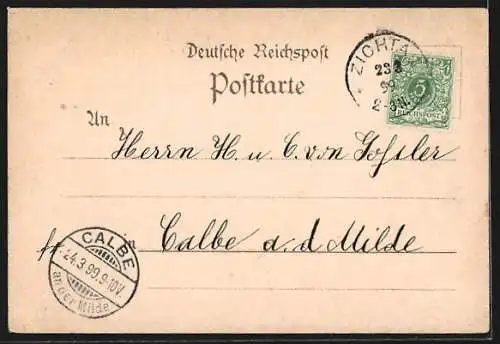 Deutsche Reichspost
Postkarte
ZICHTA
23 3
99
2-3N.
5
REICHSPOST
An
Herrn H. u. C. von Goßler
in
Calbe a. d Milde
CALBE
24.3.99.9-10V.
an der Milde